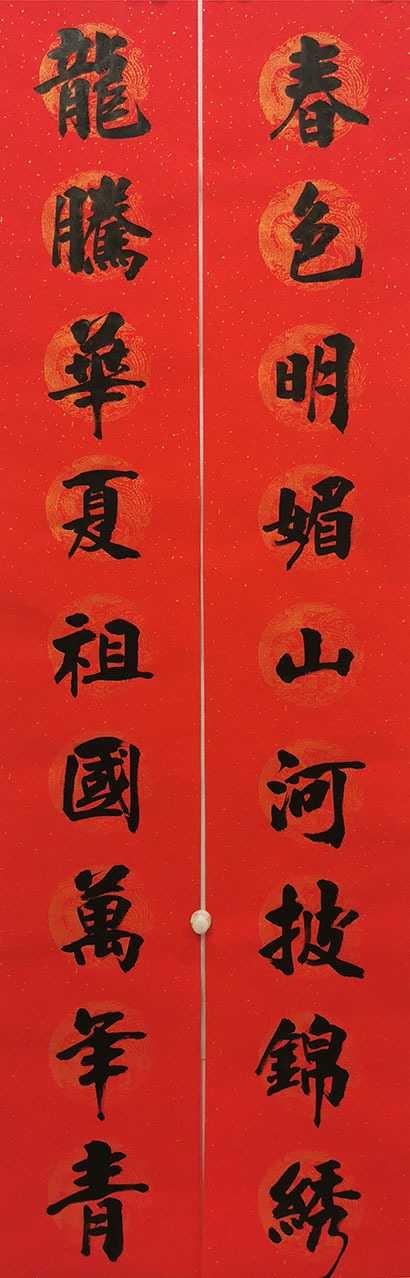 春色明媚山河披錦綉
龍騰華夏祖國萬年青